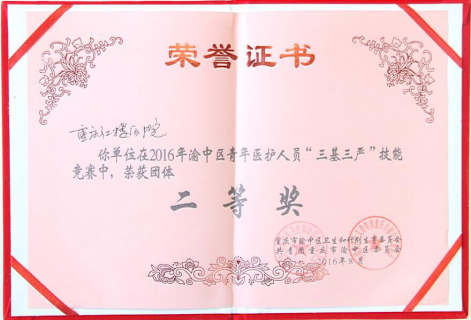 荣誉证书
重庆红楼医院
你单位在2016年渝中区青年医护人员“三基三严”技能
竞赛中，荣获团体
二等奖
重庆市渝中区卫生和计划生育委员会
共青团重庆市渝中区委员会
2016年8月